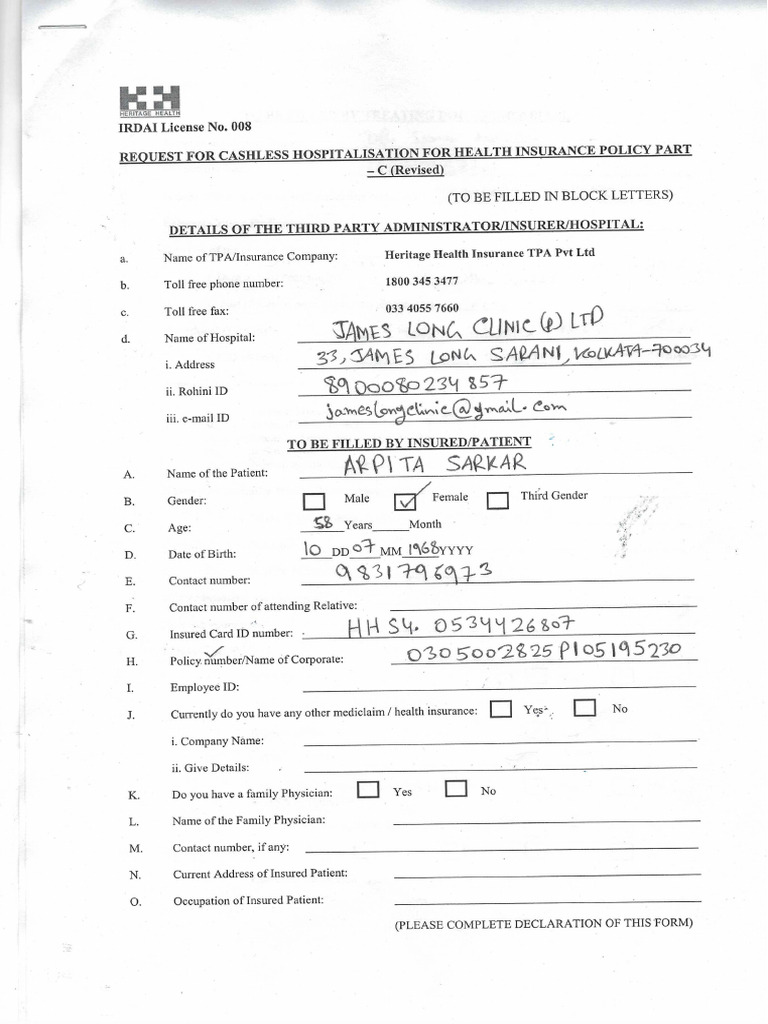 HERITAGE HEALTH
IRDAI License No. 008
REQUEST FOR CASHLESS HOSPITALISATION FOR HEALTH INSURANCE POLICY PART
– C (Revised)
(TO BE FILLED IN BLOCK LETTERS)
DETAILS OF THE THIRD PARTY ADMINISTRATOR/INSURER/HOSPITAL:
a. Name of TPA/Insurance Company: Heritage Health Insurance TPA Pvt Ltd
b. Toll free phone number: 1800 345 3477
c. Toll free fax: 033 4055 7660
d. Name of Hospital: JAMES LONG CLINIC (P) LTD
i. Address 33, JAMES LONG SARANI, KOLKATA-700034
ii. Rohini ID 8900080234857
iii. e-mail ID jameslongclinic@gmail.com
TO BE FILLED BY INSURED/PATIENT
A. Name of the Patient: ARPITA SARKAR
B. Gender: Male Female Third Gender
C. Age: 58 Years Month
D. Date of Birth: 10 DD 07 MM 1968 YYYY
E. Contact number: 9831796973
F. Contact number of attending Relative:
G. Insured Card ID number: HHS4. 0534426807
H. Policy number/Name of Corporate: 0305002825P105195230
I. Employee ID:
J. Currently do you have any other mediclaim / health insurance: Yes No
i. Company Name:
ii. Give Details:
K. Do you have a family Physician: Yes No
L. Name of the Family Physician:
M. Contact number, if any:
N. Current Address of Insured Patient:
O. Occupation of Insured Patient:
(PLEASE COMPLETE DECLARATION OF THIS FORM)